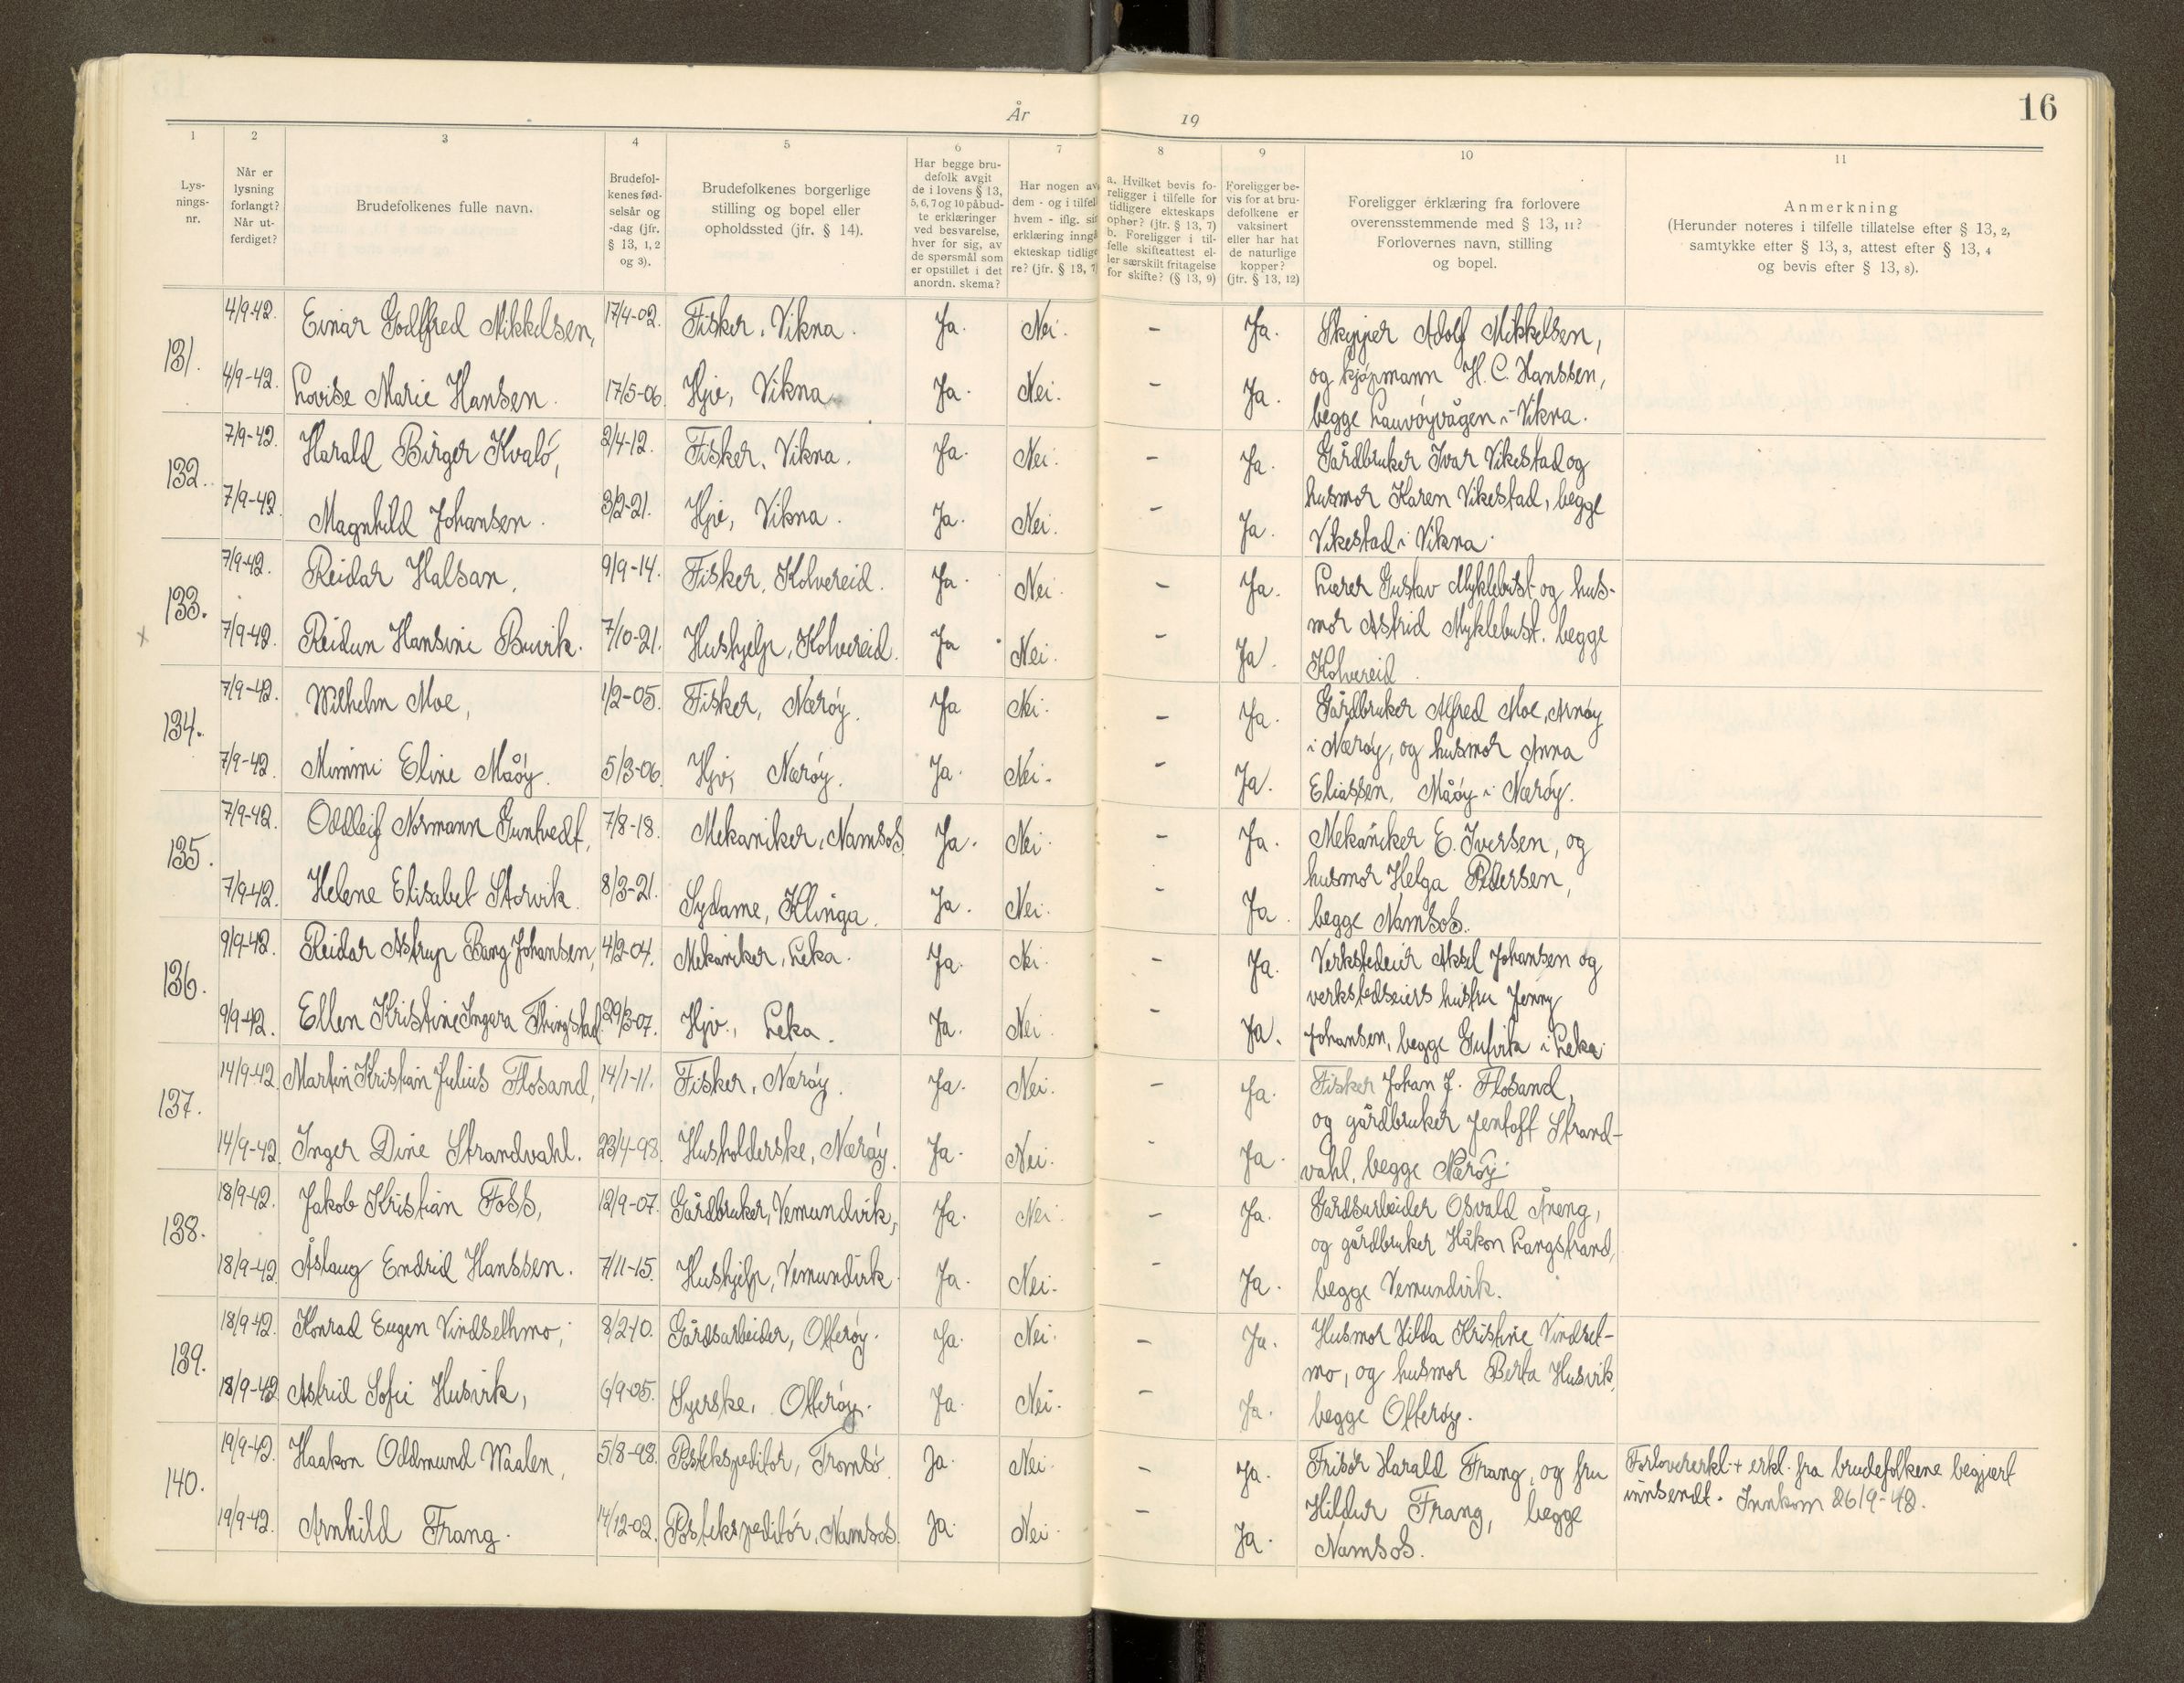 År 19
16
1 2 3 4 5 6 7 8 9 10 11
Lys-
nings-
nr.
Når er
lysning
forlangt?
Når ut-
ferdiget?
Brudefolkenes fulle navn.
Brudefol-
kenes fød-
selsår og
-dag (jfr.
§ 13, 1, 2
og 3).
Brudefolkenes borgerlige
stilling og bopel eller
opholdssted (jfr. § 14).
Har begge bru-
defolk avgit
de i lovens § 13,
5, 6, 7 og 10 påbud-
te erklæringer
ved besvarelse,
hver for sig, av
de spørsmål som
er opstillet i det
anordn. skema?
Har nogen av
dem - og i tilfel
hvem - iflg. si
erklæring inngå
ekteskap tidlige
re? (jfr. § 13, 7)
a. Hvilket bevis fo-
religger i tilfelle for
tidligere ekteskaps
ophør? (jfr. § 13, 7)
b. Foreligger i til-
felle skifteattest el-
ler særskilt fritagelse
for skifte? (§ 13, 9)
Foreligger be-
vis for at bru-
defolkene er
vaksinert
eller har hat
de naturlige
kopper?
(jfr. § 13, 12)
Foreligger erklæring fra forlovere
overensstemmende med § 13, 11?
Forlovernes navn, stilling
og bopel.
Anmerkning
(Herunder noteres i tilfelle tillatelse efter § 13, 2,
samtykke efter § 13, 3, attest efter § 13, 4
og bevis efter § 13, 8).
131. 4/9-42. Einar Godtfred Mikkelsen, 17/4-02. Fisker, Vikna. Ja. Nei. - Ja.
4/9-42. Lovise Marie Hansen. 17/5-06. Hjv, Vikna. Ja. Nei. - Ja.
Skipper Adolf Mikkelsen,
og kjøpmann H. C. Hanssen,
begge Lauvøyvågen i Vikna.
132. 7/9-42. Harald Birger Kvalø, 2/4-12. Fisker, Vikna. Ja. Nei. - Ja.
7/9-42. Magnhild Johansen. 3/2-21. Hjv, Vikna. Ja. Nei. - Ja.
Gårdbruker Ivar Vikestad og
husmor Karen Vikestad, begge
Vikestad i Vikna.
133. 7/9-42. Reidar Halsan, 9/9-14. Fisker, Kolvereid. Ja. Nei. - Ja.
x 7/9-42. Reidun Hansine Buvik. 7/10-21. Hushjelp, Kolvereid. Ja Nei. - Ja.
Lærer Gustav Myklebust og hus-
mor Astrid Myklebust. begge
Kolvereid.
134. 7/9-42. Wilhelm Moe, 1/2-05. Fisker, Nærøy. Ja Nei. - Ja.
7/9-42. Mimmi Eline Måøy. 5/3-06. Hjv, Nærøy. Ja. Nei. - Ja.
Gårdbruker Alfred Moe, Arnøy
i Nærøy, og husmor Anna
Eliassen, Måøy i Nærøy.
135. 7/9-42. Oddleif Normann 7/8-18. Mekaniker, Namsos. Ja. Nei. - Ja.
7/9-42. Helene Elisabet Storvik. 8/3-21. Sydame, Klinga. Ja. Nei. - Ja.
Mekaniker E. Iversen, og
husmor Helga Pedersen,
begge Namsos.
136. 9/9-42. Reidar Astrup Bang Johansen, 4/2-04. Mekaniker, Leka. Ja. Nei. - Ja.
9/9-42. Ellen Kristine Ingera Thingstad. 29/3-07. Hjv., Leka. Ja. Nei. - Ja.
Verkstedeier Aksel Johansen og
verkstedseiers hustru Jenny
Johansen, begge Gutvik i Leka.
137. 14/9-42. Martin Kristian Julius Flosand, 14/1-11. Fisker, Nærøy. Ja. Nei. - Ja.
14/9-42. Inger Dine Strandvahl. 23/4-98. Husholderske, Nærøy. Ja. Nei. - Ja.
Fisker Johan J. Flosand,
og gårdbruker Jentoft Strand-
vahl, begge Nærøy.
138. 18/9-42. Jakob Kristian Foss, 12/9-07. Gårdbruker, Vemundvik, Ja. Nei. - Ja.
18/9-42. Åslaug Endrid Hanssen. 7/11-15. Hushjelp, Vemundvik. Ja. Nei. - Ja.
Gårdsarbeider Osvald Åneng,
og gårdbruker Håkon Langstrand,
begge Vemundvik.
139. 18/9-42. Konrad Eugen Vindsethmo, 8/2-10. Gårdsarbeider, Otterøy. Ja. Nei. - Ja.
18/9-42 Astrid Sofie Husvik, 6/9-05. Syerske, Otterøy. Ja. Nei. - Ja.
Husmor Vilda Kristine Vindset-
mo, og husmor Berta Husvik,
begge Otterøy.
140. 19/9-42. Haakon Oddmund Waalen, 5/8-98. Postekspeditør, Tromsø. Ja. Nei. - Ja.
19/9-42. Arnhild Frang. 14/12-02. Postekspeditør, Namsos. Ja. Nei. - Ja.
Frisør Harald Frang, og fru
Hildur Frang, begge
Namsos.
Forlovererkl. + erkl. fra brudefolkene begjært
innsendt. Innkom 26/9-42.